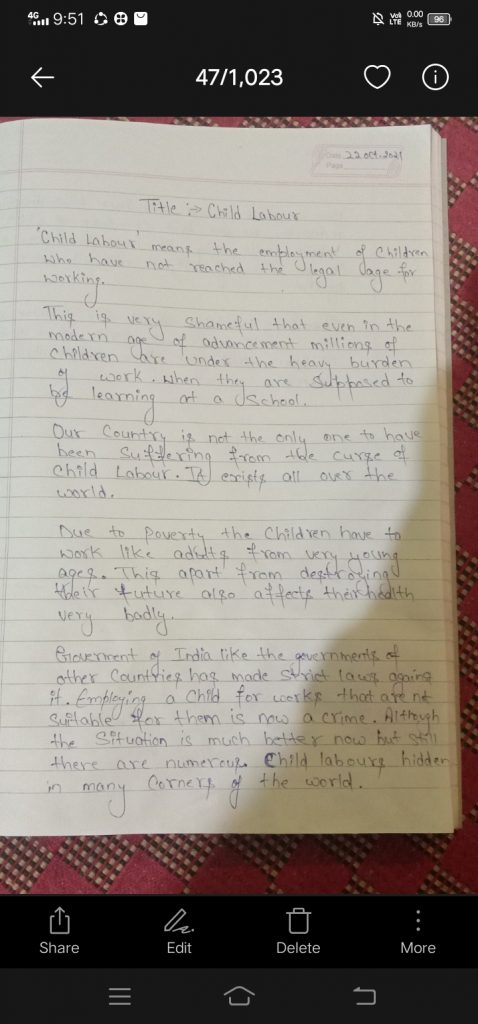 4G 9:51 Vo) LTE 0.00 KB/s 96
47/1,023
Date 22 oct. 2021
Page
Title :-> Child Labour
'Child Labour' means the employment of Children
who have not reached the legal age for
working.
This is very shameful that even in the
modern age of advancement millions of
children are under the heavy burden
of work. When they are supposed to
be learning at a School.
Our Country is not the only one to have
been suffering from the curse of
child Labour. It exists all over the
world.
Due to poverty the Children have to
work like adults from very young
ages. This apart from destroying
their future also affects their health
very badly.
Goverment of India like the governments of
other Countries has made strict laws agains
it. Employing a Child for works that are not
Suitable for them is now a crime. Although
the Situation is much better now but still
there are numerous Child labours hidden
in many Corners of the world.
Share Edit Delete More